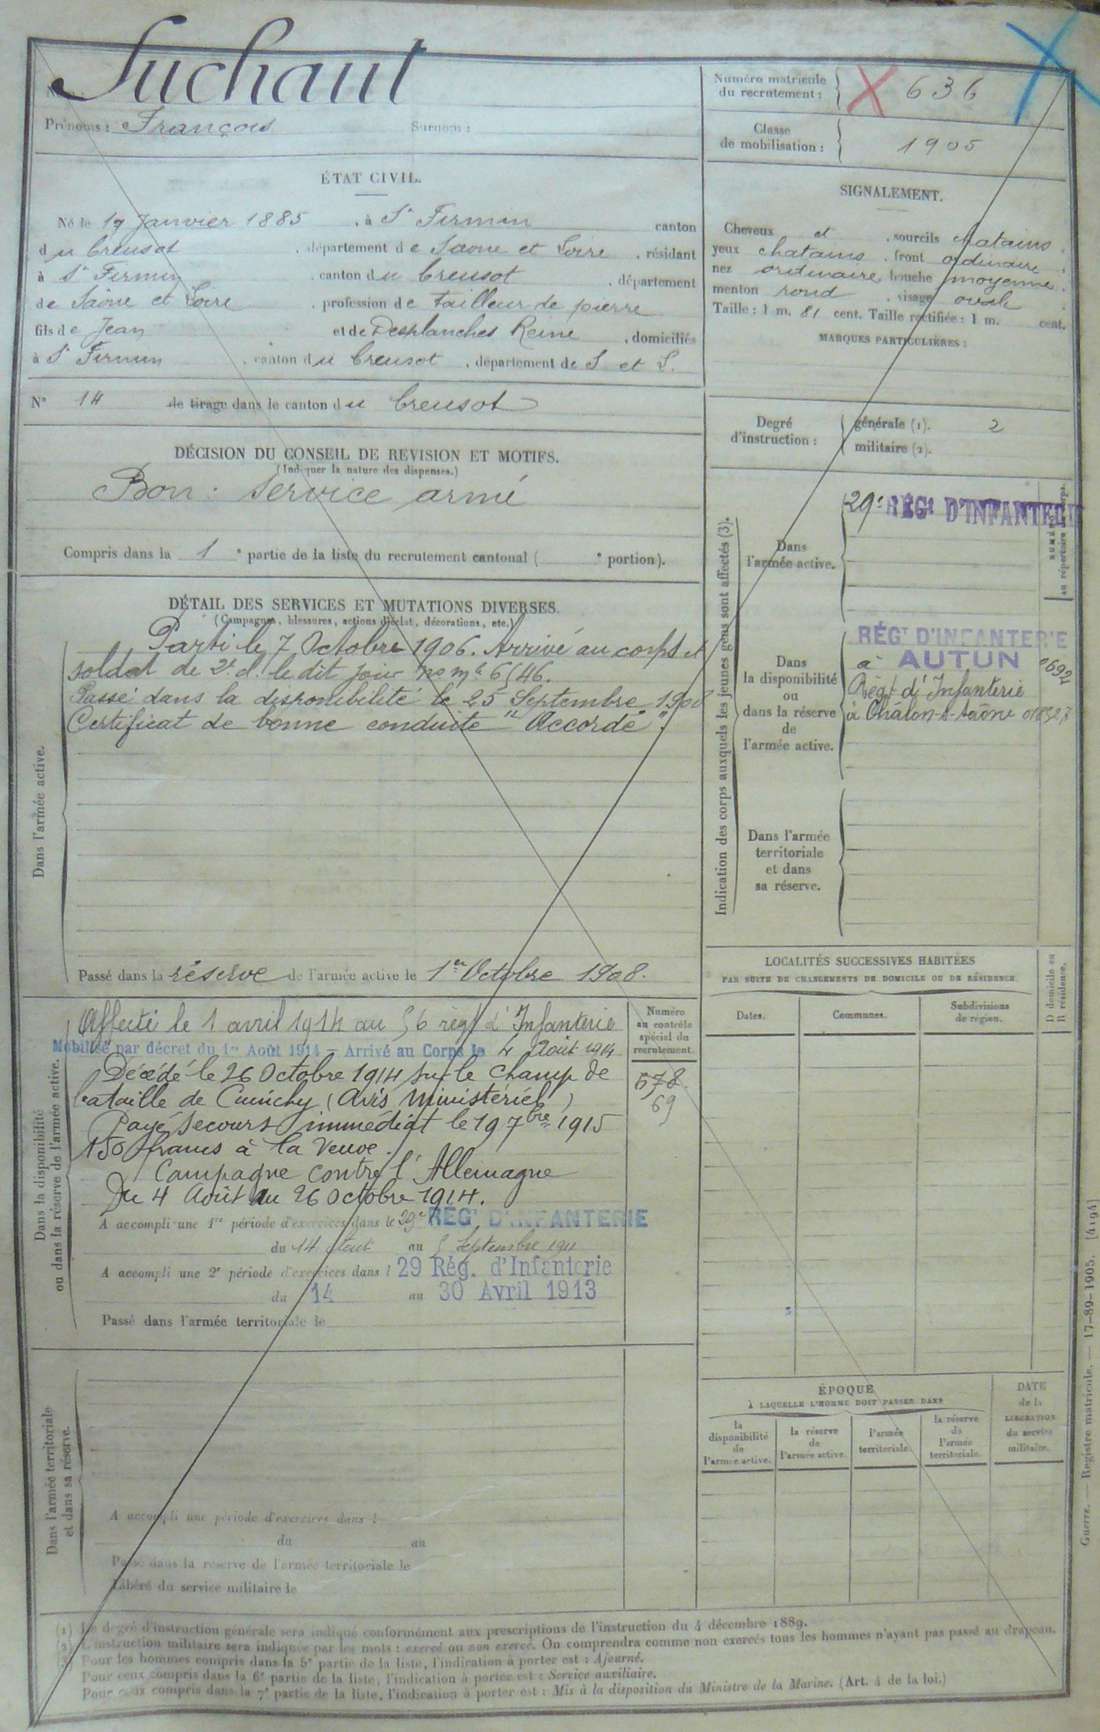 Suchaut
Prénoms : François Surnom :
ÉTAT CIVIL.
Né le 19 Janvier 1885, à St Firmin canton
du Creusot, département de Saône et Loire, résidant
à St Firmin, canton du Creusot, département
de Saône et Loire, profession de tailleur de pierre
fils de Jean et de Desplanches Reine, domiciliés
à St Firmin, canton du Creusot, département de S. et L.
N° 14 de tirage dans le canton du Creusot
DÉCISION DU CONSEIL DE REVISION ET MOTIFS.
(Indiquer la nature des dispenses.)
Bon : Service armé
Compris dans la 1 e partie de la liste du recrutement cantonal ( e portion).
DÉTAIL DES SERVICES ET MUTATIONS DIVERSES.
(Campagnes, blessures, actions d'éclat, décorations, etc.)
Dans l'armée active.
Parti le 7 Octobre 1906. Arrivé au corps et
soldat de 2e cl. le dit jour no mle 6546.
Passé dans la disponibilité le 25 Septembre 1908
Certificat de bonne conduite "Accordé".
Passé dans la réserve de l'armée active le 1er Octobre 1908.
Dans la disponibilité
ou dans la réserve de l'armée active.
Affecté le 1 avril 1914 au 56 régt d'Infanterie
Mobilisé par décret du 1er Août 1914 – Arrivé au Corps le 4 Août 1914
Décédé le 26 Octobre 1914 sur le champ de
bataille de Cuinchy (Avis Ministériel)
Payé Secours immédiat le 19 7bre 1915
150 francs à la Veuve.
Campagne contre l'Allemagne
Du 4 Août au 26 Octobre 1914.
A accompli une 1re période d'exercices dans le 29e RÉGt D'INFANTERIE
du 14 Août au 5 Septembre 1911
A accompli une 2e période d'exercices dans l 29 Rég. d'Infanterie
du 14 au 30 Avril 1913
Passé dans l'armée territoriale le
Numéro
au contrôle
spécial du
recrutement.
678
69
Dans l'armée territoriale
et dans sa réserve.
A accompli une période d'exercices dans l
du au
Passé dans la réserve de l'armée territoriale le
Libéré du service militaire le
Numéro matricule
du recrutement : 636
Classe
de mobilisation : 1905
SIGNALEMENT.
Cheveux et, sourcils chatains,
yeux chatains, front ordinaire,
nez ordinaire, bouche moyenne,
menton rond, visage ovale.
Taille : 1 m. 81 cent. Taille rectifiée : 1 m. cent.
MARQUES PARTICULIÈRES :
Degré
d'instruction :
générale (1). 2
militaire (2).
Indication des corps auxquels les jeunes gens sont affectés (3).
Dans
l'armée active.
29e RÉGt D'INFANTERIE
au répertoire du corps.
Dans
la disponibilité
ou
dans la réserve
de
l'armée active.
RÉGT D'INFANTERIE
à AUTUN
Régt d'Infanterie
à Châlon-s-Saône
Dans l'armée
territoriale
et dans
sa réserve.
LOCALITÉS SUCCESSIVES HABITÉES
PAR SUITE DE CHANGEMENTS DE DOMICILE OU DE RÉSIDENCE.
Dates. Communes. Subdivisions
de région.
D domicile ou
R résidence.
ÉPOQUE
À LAQUELLE L'HOMME DOIT PASSER DANS
la
disponibilité
de
l'armée active.
la réserve
de
l'armée active.
l'armée
territoriale.
la réserve
de
l'armée
territoriale.
DATE
de la
LIBÉRATION
du service
militaire.
Guerre. — Registre matricule. — 17-89-1905. [4194]
(1) Le degré d'instruction générale sera indiqué conformément aux prescriptions de l'instruction du 4 décembre 1889.
(2) L'instruction militaire sera indiquée par les mots : exercé ou non exercé. On comprendra comme non exercés tous les hommes n'ayant pas passé au drapeau.
(3) Pour les hommes compris dans la 5e partie de la liste, l'indication à porter est : Ajourné.
Pour ceux compris dans la 6e partie de la liste, l'indication à porter est : Service auxiliaire.
Pour ceux compris dans la 7e partie de la liste, l'indication à porter est : Mis à la disposition du Ministre de la Marine. (Art. 4 de la loi.)